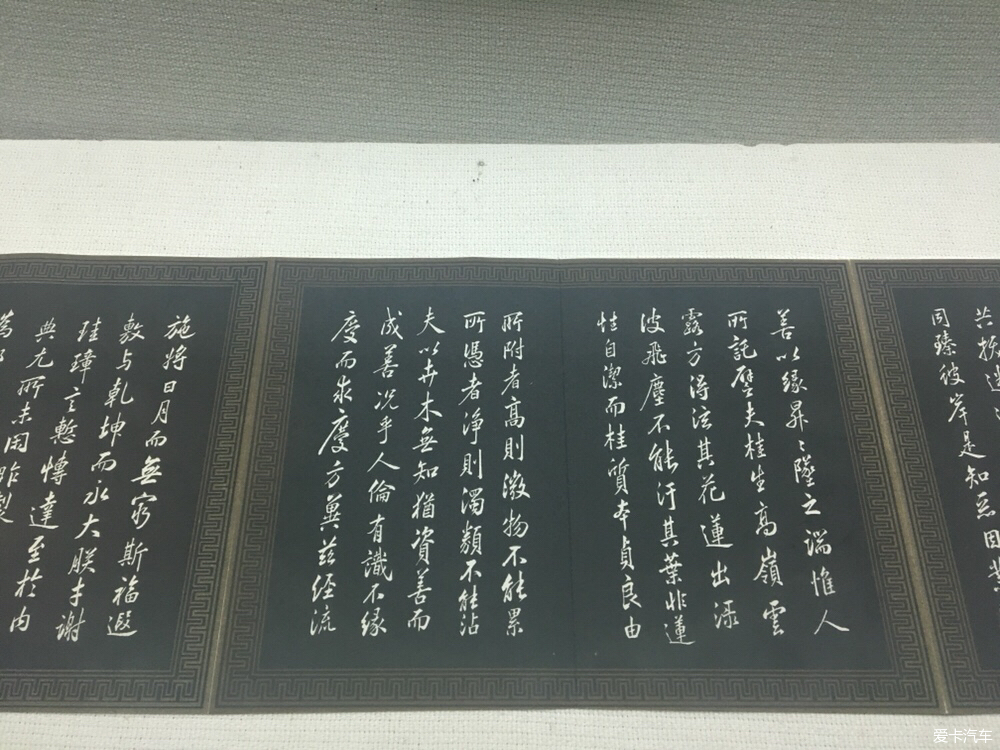 共拔迷
同臻彼岸是知惡因業
善以緣昇〻墜之端惟人
所託譬夫桂生高嶺雲
露方得泫其花蓮出淥
波飛塵不能汙其葉非蓮
性自潔而桂質本貞良由
所附者高則微物不能累
所憑者淨則濁類不能沾
夫以卉木無知猶資善而
成善況乎人倫有識不緣
慶而求慶方冀茲經流
施將日月而無窮斯福遐
敷与乾坤而永大朕才謝
珪璋言慙博達至於內
典尤所未閑昨製
爱卡汽车